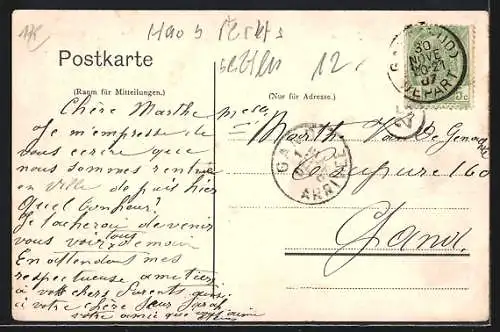 12.-
Postkarte
(Raum für Mitteilungen.)
(Nur für Adresse.)
Chère Marthe
Je m'empresse de
vous ecrire que
nous sommes rentrés
en Ville depuis hier
Quel bonheur!
Je tacherai de venir
vous voir tous demain
En attendant mes
respectueuse amitiés
à vos chers Parents ainsi
à votre chère Sœur Sarah
votre amie que vous aime
Melle
Marthe Van De
Coupure 160
Gand
30
NOVE
DEPART
5c
GAND
1
ARRIVÉE